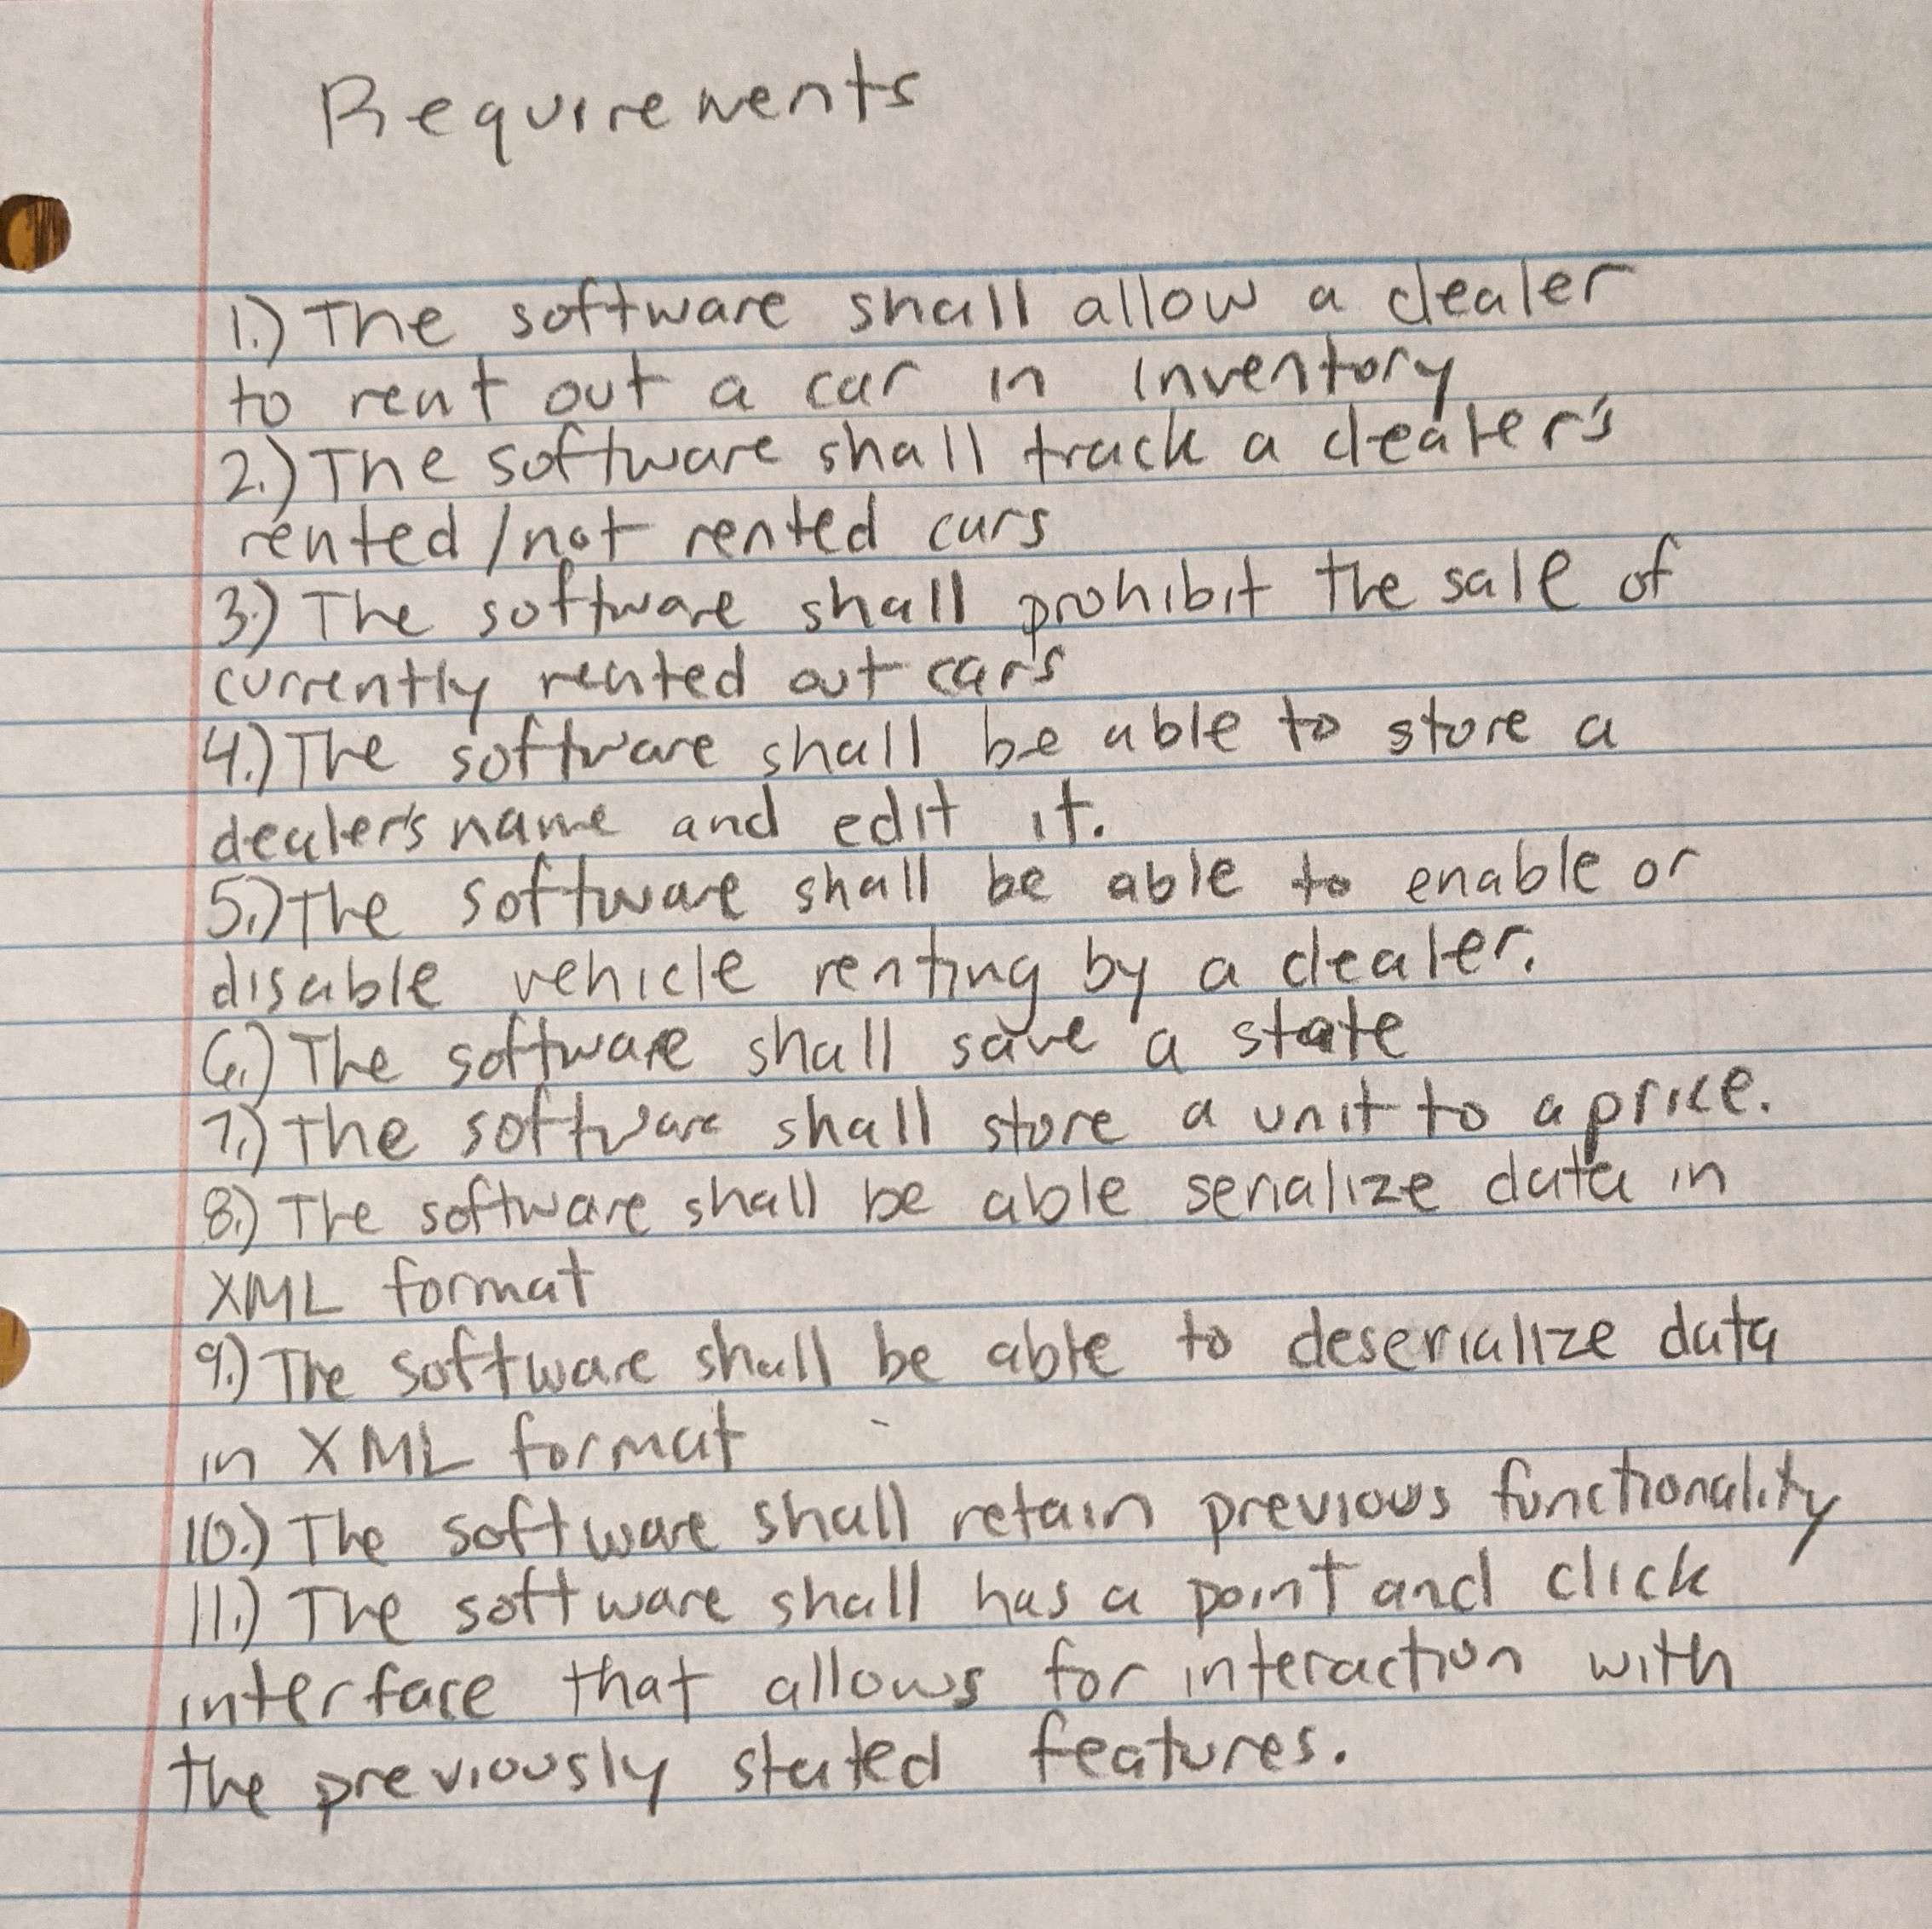 Requirements
1.) The software shall allow a dealer
to rent out a car in inventory
2.) The software shall track a dealer's
rented/not rented cars
3.) The software shall prohibit the sale of
currently rented out cars
4.) The software shall be able to store a
dealer's name and edit it.
5.) The software shall be able to enable or
disable vehicle renting by a dealer.
6.) The software shall save a state
7.) The software shall store a unit to a price.
8.) The software shall be able serialize data in
XML format
9.) The software shall be able to deserialize data
in XML format
10.) The software shall retain previous functionality
11.) The software shall has a point and click
interface that allows for interaction with
the previously stated features.